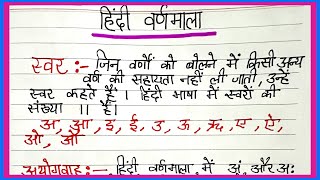 हिंदी वर्णमाला
स्वर :- जिन वर्णों को बोलने में किसी अन्य
वर्ण की सहायता नहीं ली जाती, उन्हें
स्वर कहते हैं। हिंदी भाषा में स्वरों की
संख्या 11 है।
अ, आ, इ, ई, उ, ऊ, ऋ, ए, ऐ,
ओ, औ
अयोगवाह :-, हिंदी वर्णमाला में अं, और अः